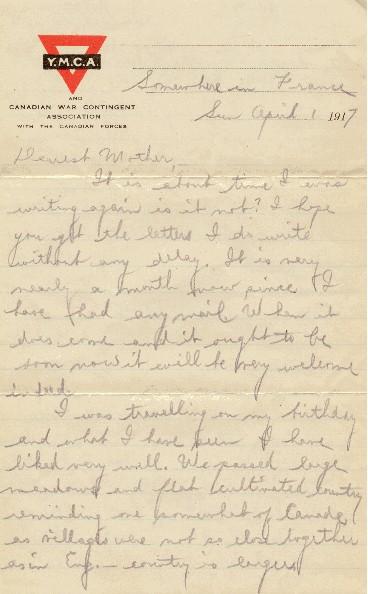 Y.M.C.A.
AND
CANADIAN WAR CONTINGENT
ASSOCIATION
WITH THE CANADIAN FORCES
Somewhere in France
Sun April 1 1917
Dearest Mother,
It is about time I was
writing again is it not? I hope
you get the letters I do write
without any delay. It is very
nearly a month now since I
have had any mail. When it
does come and it ought to be
soon now it will be very welcome
indeed.
I was travelling on my birthday
and what I have seen I have
liked very well. We passed large
meadows and flat cultivated country
reminding one somewhat of Canada,
as villages were not so close together
as in Eng. – country is larger